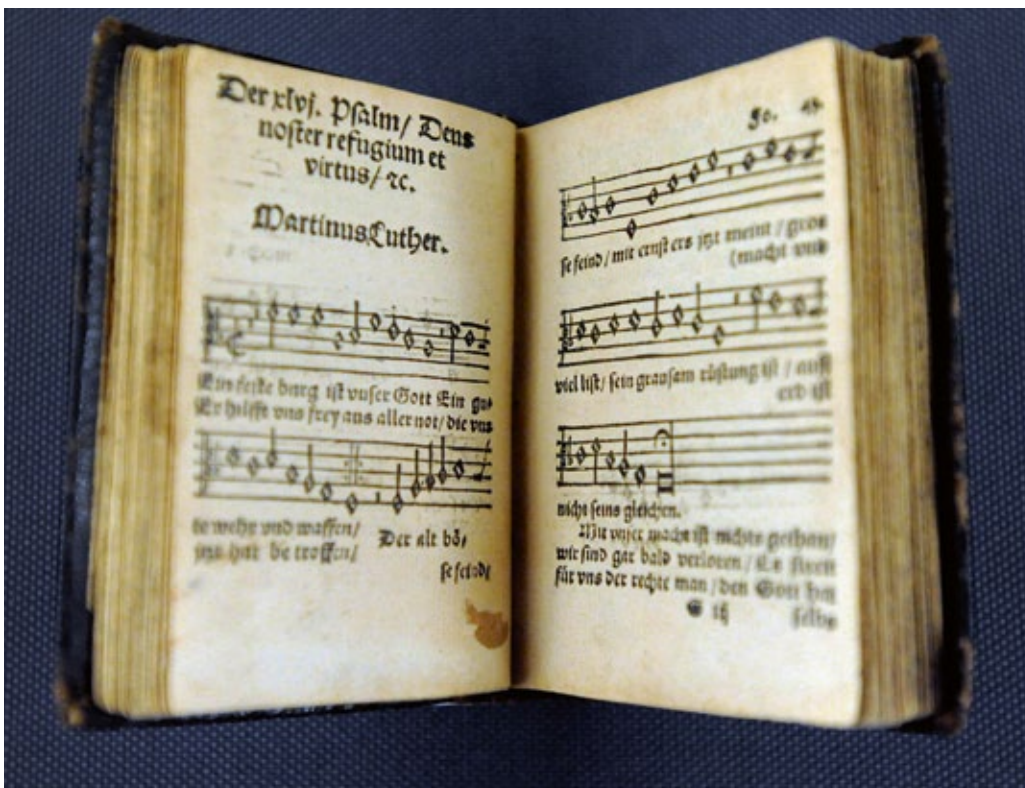 Der xlvj. Psalm/ Deus
noster refugium et
virtus/ ꝛc.
Martinus Luther.
Ein feste burg ist vnser Gott Ein gu⸗
Er hilfft vns frey aus aller not/ die vns
te wehr vnd waffen/ Der alt bö⸗
itzt hat be troffen/
se feind/
Fo. 43.
se feind/ mit ernst ers jtzt meint/ gros
(macht vnd
viel list/ sein grausam rüstung ist/ auff
erd ist
nicht seins gleichen.
Mit vnser macht ist nichts gethan/
wir sind gar bald verloren/ Es streit
für vns der rechte man/ den Gott hat
G iij selbs